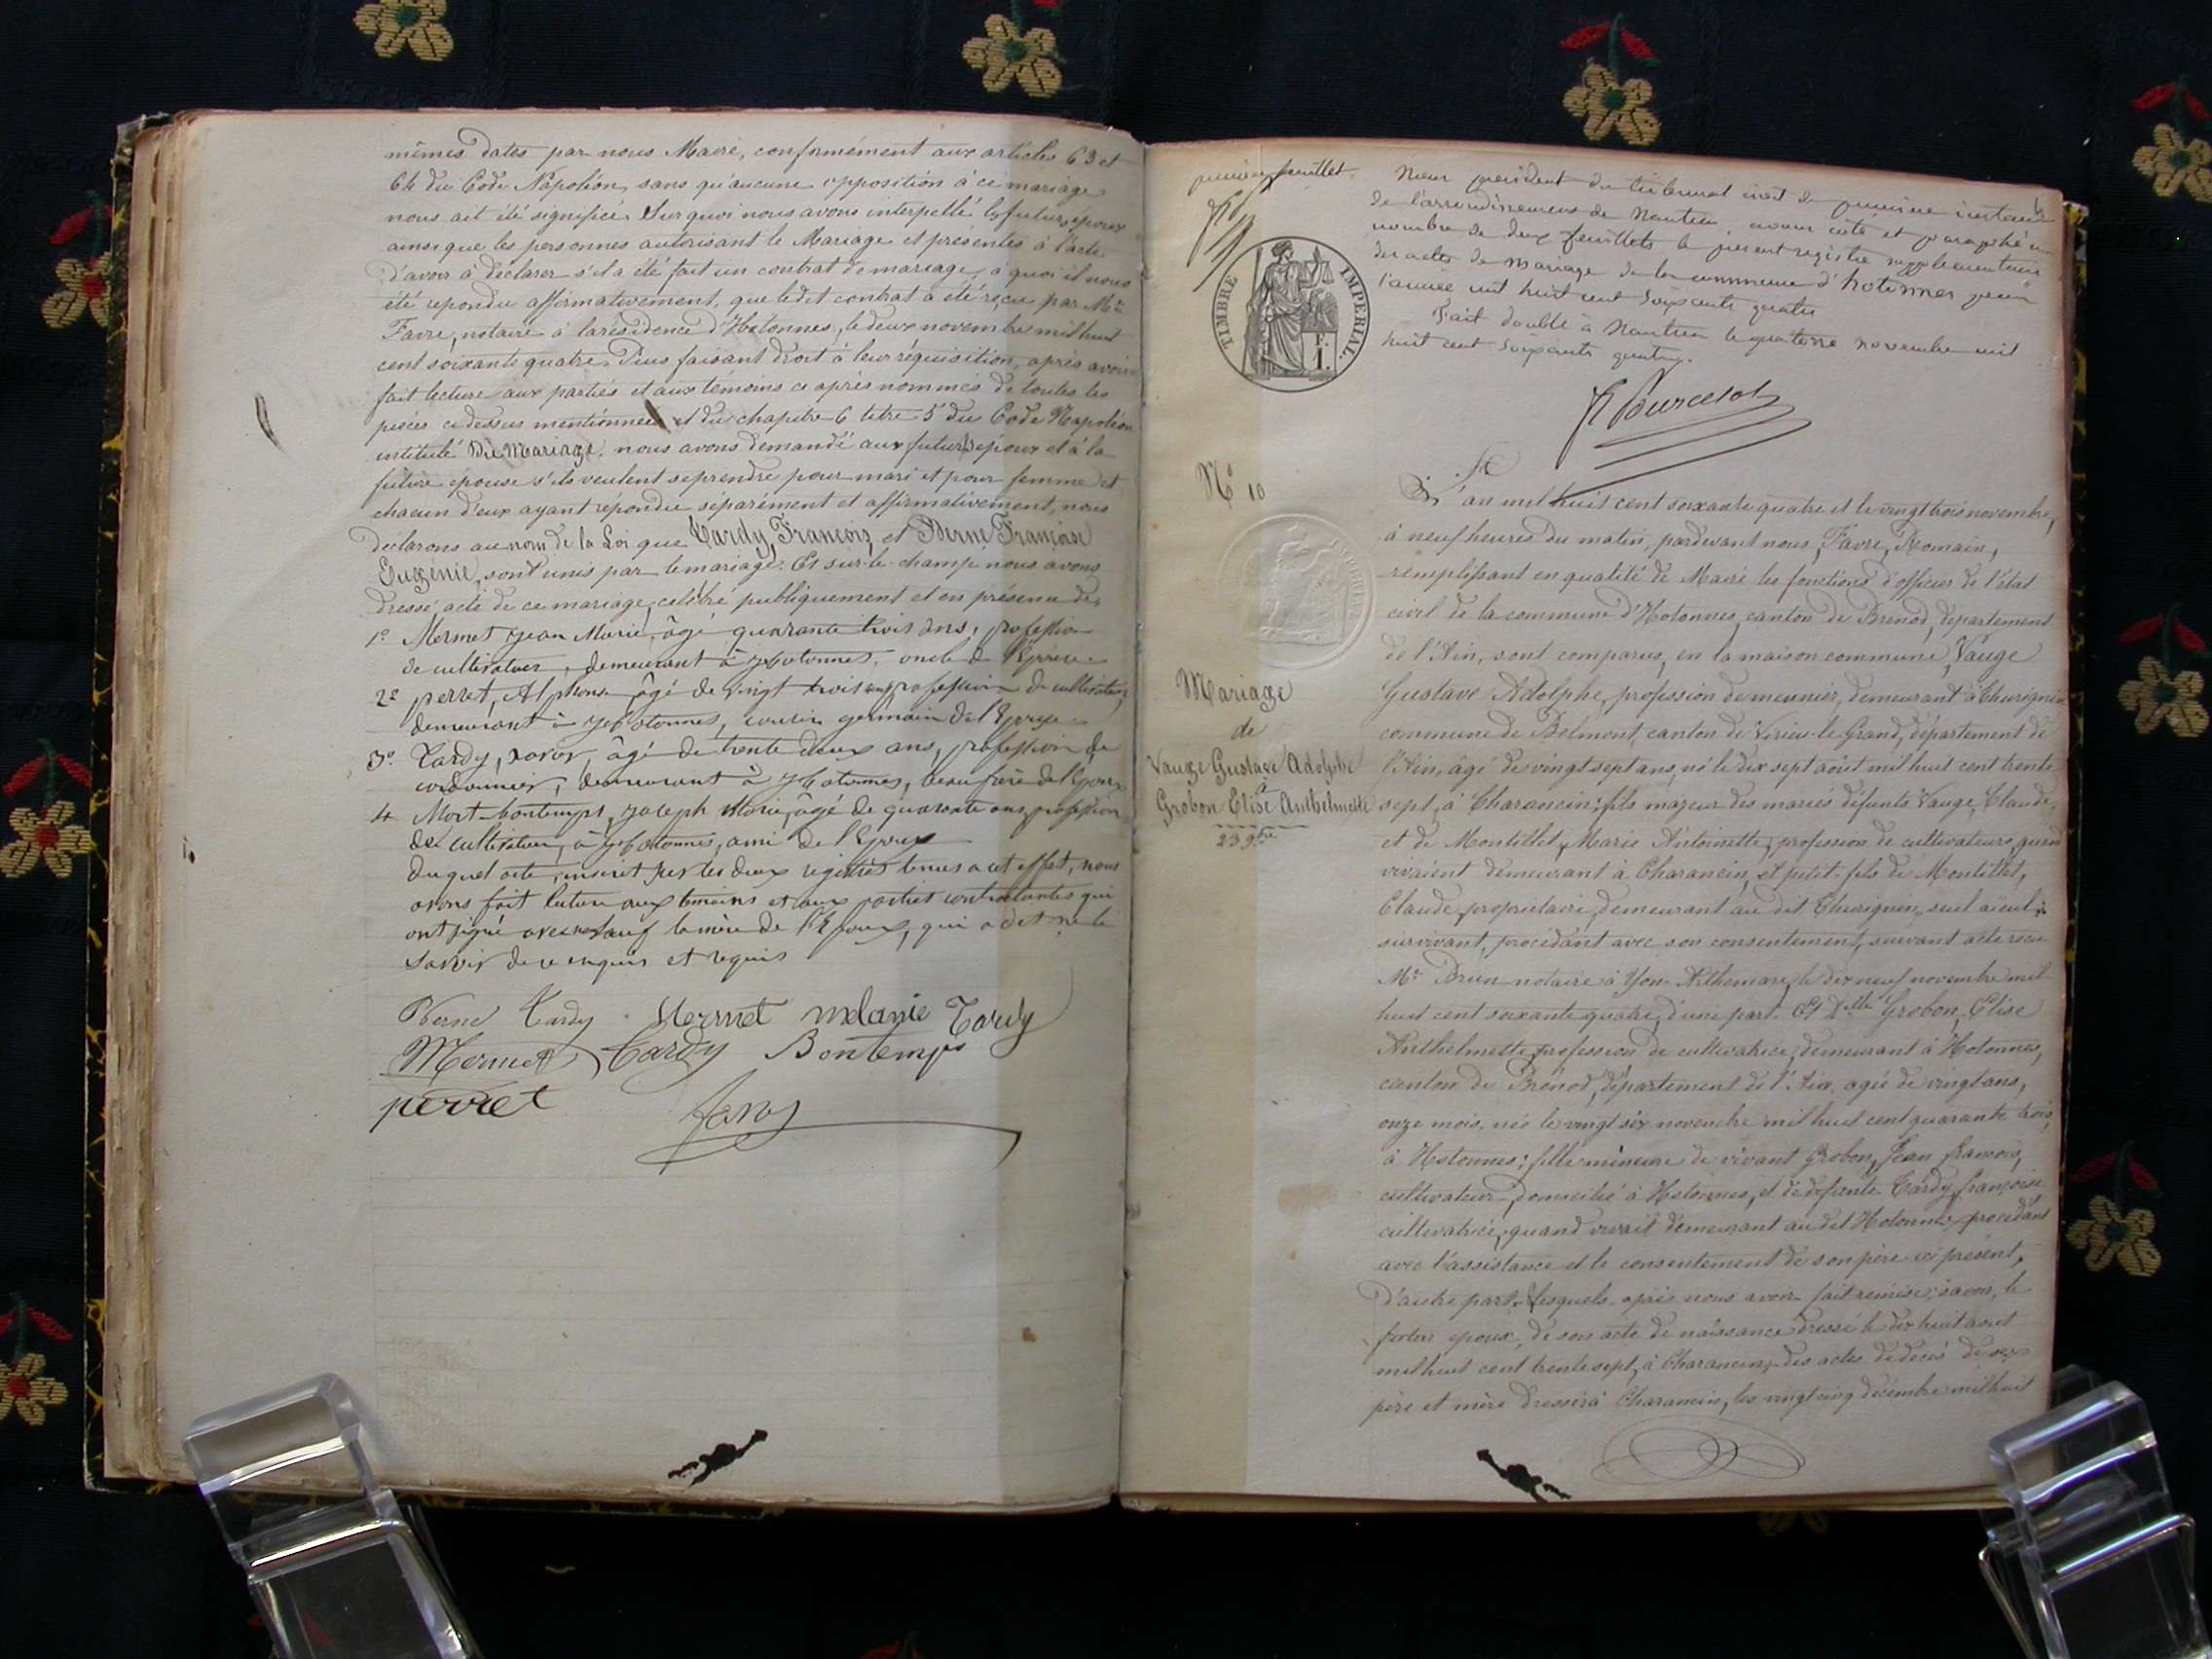 mêmes dates par nous Maire, conformément aux articles 63 et
64 du Code Napoléon, sans qu'aucune opposition à ce mariage
nous ait été signifiée. Sur quoi nous avons interpellé les futurs époux
ainsi que les personnes autorisant le Mariage et présentes à l'acte
d'avoir à déclarer s'il a été fait un contrat de mariage, à quoi il nous
été répondu affirmativement, que ledit contrat a été reçu par Me
Favre, notaire à la résidence d'Hotonnes, le deux novembre mil huit
cent soixante quatre. Puis faisant droit à leur réquisition, après avoir
fait lecture aux parties et aux témoins ci après nommés de toutes les
pièces ci dessus mentionnées et du chapitre 6 titre 5 du Code Napoléon
intitulé Du Mariage, nous avons demandé aux futurs époux et à la
future épouse s'ils veulent se prendre pour mari et pour femme et
chacun d'eux ayant répondu séparément et affirmativement, nous
déclarons au nom de la Loi que Tardy, François et Berne Françoise
Eugénie, sont unis par le mariage. Et sur-le-champ nous avons
dressé acte de ce mariage, célébré publiquement et en présence de,
1° Mermet Jean Marie, âgé quarante trois ans, profession
de cultivateur, demeurant à Hotonnes, oncle de l'Epouse
2° perret, Alphonse, âgé de vingt trois ans profession de cultivateur
demeurant à Hotonnes, cousin germain de l'Epouse
3° Tardy, xavier, âgé de trente deux ans, profession de
cordonnier, demeurant à Hotonnes, beau frère de l'Epoux
4 Mort-bontemps, Joseph Marie, âgé de quarante ans, profession
de cultivateur, à Hotonnes, ami de l'Epoux
duquel acte, inscrit sur les deux registres tenus a cet effet, nous
avons fait lecture aux témoins et aux parties contractantes qui
ont signé avec nous sauf la mère de l'Epoux, qui a dit ne le
savoir de ce enquis et requis
Berne Tardy Mermet melanie Tardy
Mermet Tardy Bontemps
perret Favre
premier feuillet
Nous president du tribunal civil de premiere instance
de l'arrondissement de Nantua, avons coté et paraphé au
nombre de deux feuillets le present registre supplementaire
des actes de mariage de la commune d'hotonnes pour
l'année mil huit cent soixante quatre
Fait double à Nantua le quatorze novembre mil
huit cent soixante quatre.
TIMBRE IMPERIAL.
1 F.
N° 10
L'an mil huit cent soixante quatre et le vingt trois novembre,
à neuf heures du matin, pardevant nous, Favre, Romain,
remplissant en qualité de Maire les fonctions d'officier de l'état
civil de la commune d'Hotonnes, canton de Brénod, département
de l'Ain, sont comparus, en la maison commune, Vauge
Gustave Adolphe, profession de meunier, demeurant à Thurignin
commune de Belmont, canton de Virieu-le-Grand, département de
l'Ain, âgé de vingt sept ans, né le dix sept août mil huit cent trente
sept, à Charancin, fils majeur des mariés défunts Vauge, Claude,
et de Montillet, Marie Antoinette, profession de cultivateurs, quand
vivaient demeurant à Charancin, et petit-fils de Montillet,
Claude, propriétaire, demeurant au dit Thurignin, seul aïeul
survivant, procédant avec son consentement, suivant acte reçu
Me Brun notaire à Yon-Arthemare, le dix neuf novembre mil
huit cent soixante quatre, d'une part. Et Dlle Grobon, Elise
Anthelmette, profession de cultivatrice, demeurant à Hotonnes,
canton de Brénod, département de l'Ain, agée de vingt ans,
onze mois, née le vingt six novembre mil huit cent quarante trois,
à Hotonnes; fille mineure de vivant Grobon, Jean François,
cultivateur, domicilié à Hotonnes, et de défunte Tardy, françoise
cultivatrice, quand vivait demeurant au dit Hotonnes, procédant
avec l'assistance et le consentement de son père ici présent,
d'autre part. Lesquels après nous avoir fait remise; savoir, le
futur époux, de son acte de naissance dressé le dix huit août
mil huit cent trente sept, à Charancin, des actes de décès de ses
père et mère dressés à Charancin, les vingt cinq décembre mil huit
Mariage
de
Vauge Gustave Adolphe
à
Grobon Elise Anthelmette
23 9bre